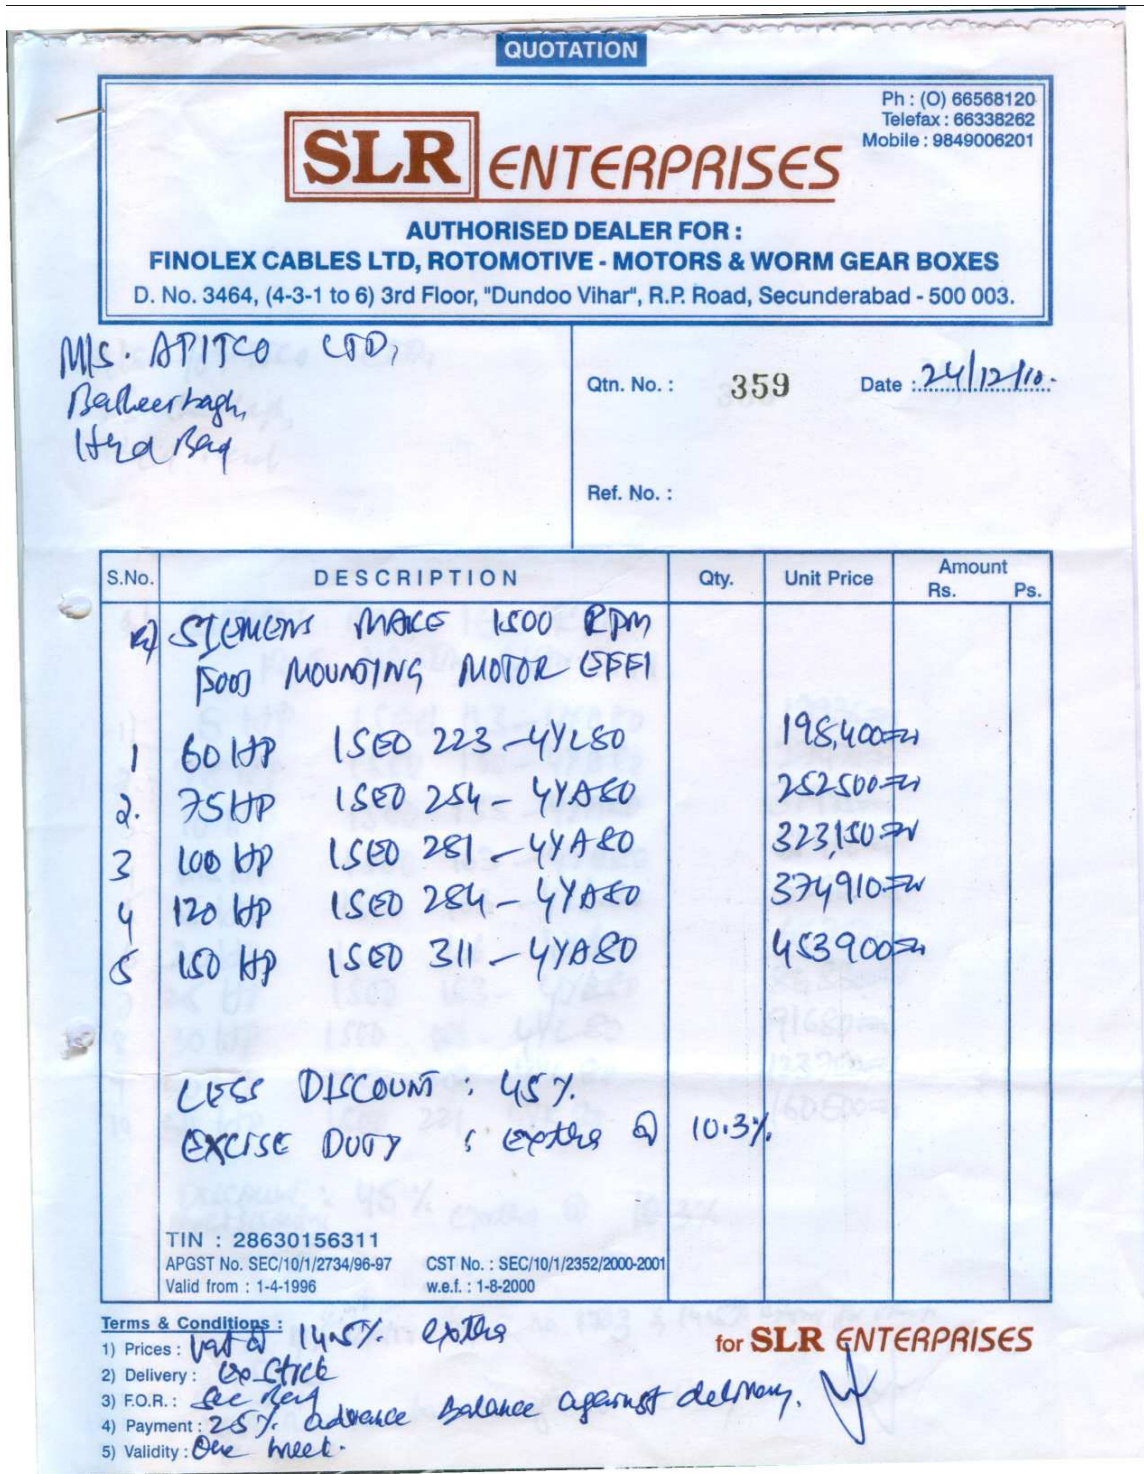 QUOTATION
Ph : (O) 66568120
Telefax : 66338262
Mobile : 9849006201
SLR ENTERPRISES
AUTHORISED DEALER FOR :
FINOLEX CABLES LTD, ROTOMOTIVE - MOTORS & WORM GEAR BOXES
D. No. 3464, (4-3-1 to 6) 3rd Floor, "Dundoo Vihar", R.P. Road, Secunderabad - 500 003.
M/s. APITCO LTD,
Basheerbagh,
Hyd Bad
Qtn. No. : 359 Date : 24/12/10.
Ref. No. :
S.No. DESCRIPTION Qty. Unit Price Amount Rs. Ps.
SIEMENS MAKE 1500 RPM
MOUNTING MOTOR EFF1
1 60 HP 1SE0 223-4YL80 198,400=00
2. 75 HP 1SE0 254-4YA80 252500=00
3 100 HP 1SE0 281-4YA80 323,150=00
4 120 HP 1SE0 284-4YA80 374910=00
5 150 HP 1SE0 311-4YA80 453900=00
LESS DISCOUNT : 45%.
EXCISE DUTY : extra @ 10.3%
TIN : 28630156311
APGST No. SEC/10/1/2734/96-97 CST No. : SEC/10/1/2352/2000-2001
Valid from : 1-4-1996 w.e.f. : 1-8-2000
Terms & Conditions :
for SLR ENTERPRISES
1) Prices : Vat @ 14.5% extra
2) Delivery : Ex-Stock
3) F.O.R. : Sec Bad
4) Payment : 25% advance Balance against delivery.
5) Validity : One week.